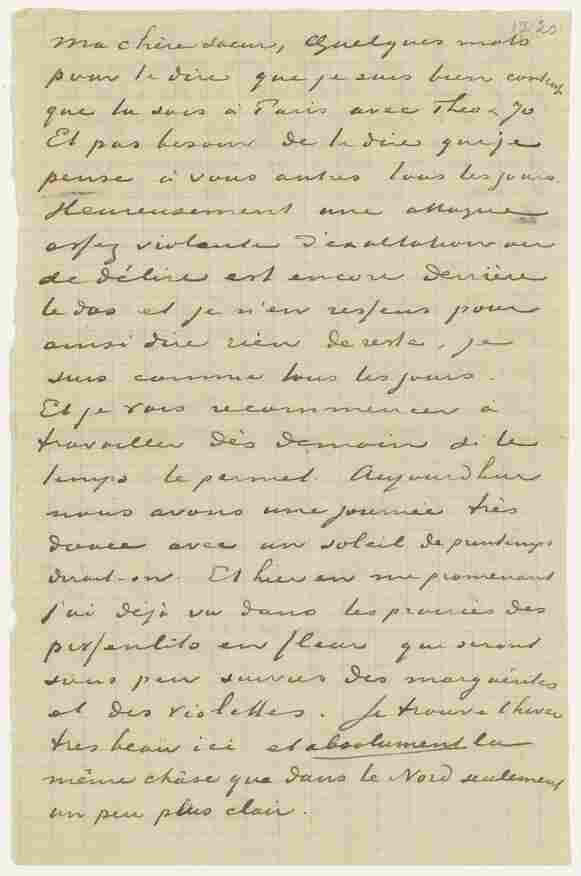 1720
Ma chère soeur, Quelques mots
pour te dire que je suis bien content
que tu sois à Paris avec Theo & Jo
Et pas besoin de te dire que je
pense à vous autres tous les jours.
Heureusement une attaque
assez violente d'exaltation ou
de délire est encore derrière
le dos et je n'en ressens pour
ainsi dire rien de reste, je
suis comme tous les jours.
Et je vais recommencer à
travailler dès demain si le
temps le permet. Aujourd'hui
nous avons une journée très
douce avec un soleil de printemps
dirait-on. Et hier en me promenant
j'ai déjà vu dans les prairies des
pissenlits en fleur qui seront
sous peu suivies des marguérites
et des violettes. Je trouve l'hiver
très beau ici et absolument la
même chôse que dans le Nord seulement
un peu plus clair.